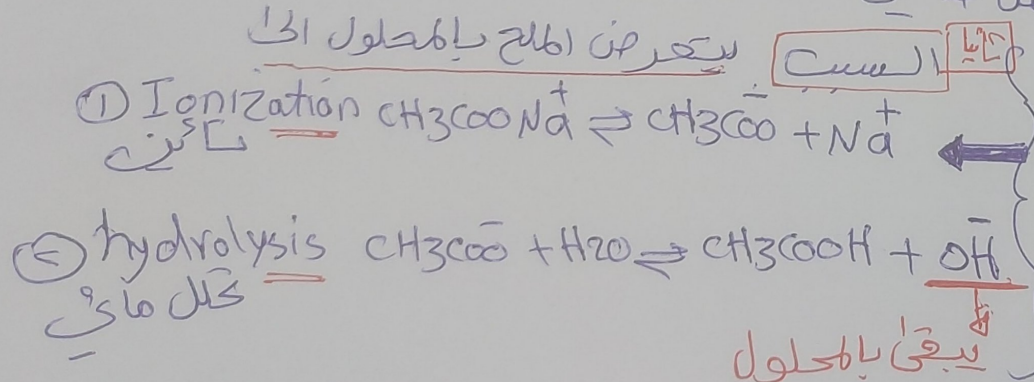 ثانيا السبب يتعرض الملح بالمحلول الى
① Ionization CH3COONa⁺ ⇌ CH3COO⁻ + Na⁺
تأين
② hydrolysis CH3COO⁻ + H2O ⇌ CH3COOH + OH⁻
تحلل مائي
يبقى بالمحلول